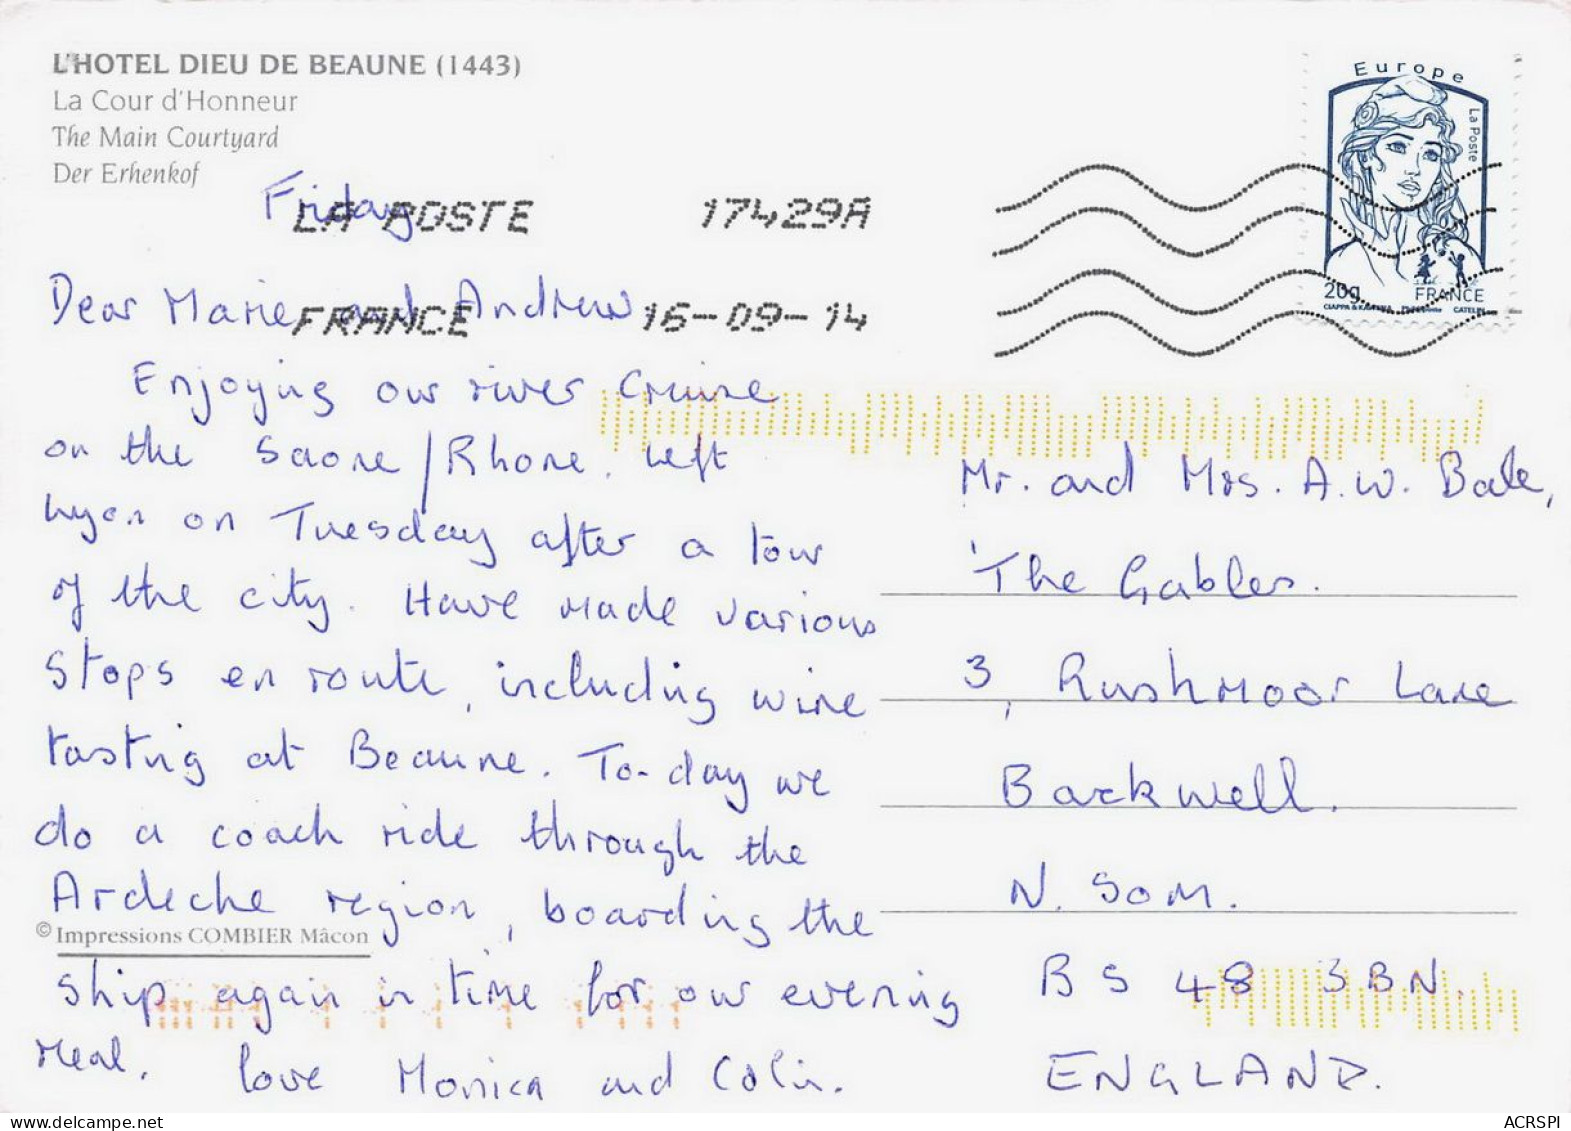 L'HOTEL DIEU DE BEAUNE (1443)
La Cour d'Honneur
The Main Courtyard
Der Erhenkof
Europe
La Poste
20g FRANCE
CIAPPA & KAWENA CATELIN
LA POSTE 17429A
FRANCE 16-09-14
Friday
Dear Marie and Andrew
Enjoying our river cruise
on the Saone/Rhone. Left
Lyon on Tuesday after a tour
of the city. Have made various
stops en route, including wine
tasting at Beaune. To-day we
do a coach ride through the
Ardeche region, boarding the
ship again in time for our evening
meal. Love Monica and Colin.
© Impressions COMBIER Mâcon
Mr. and Mrs. A.W. Bale,
'The Gables.
3, Rushmoor Lane
Backwell.
N. Som.
BS 48 3BN.
ENGLAND.
ACRSPI